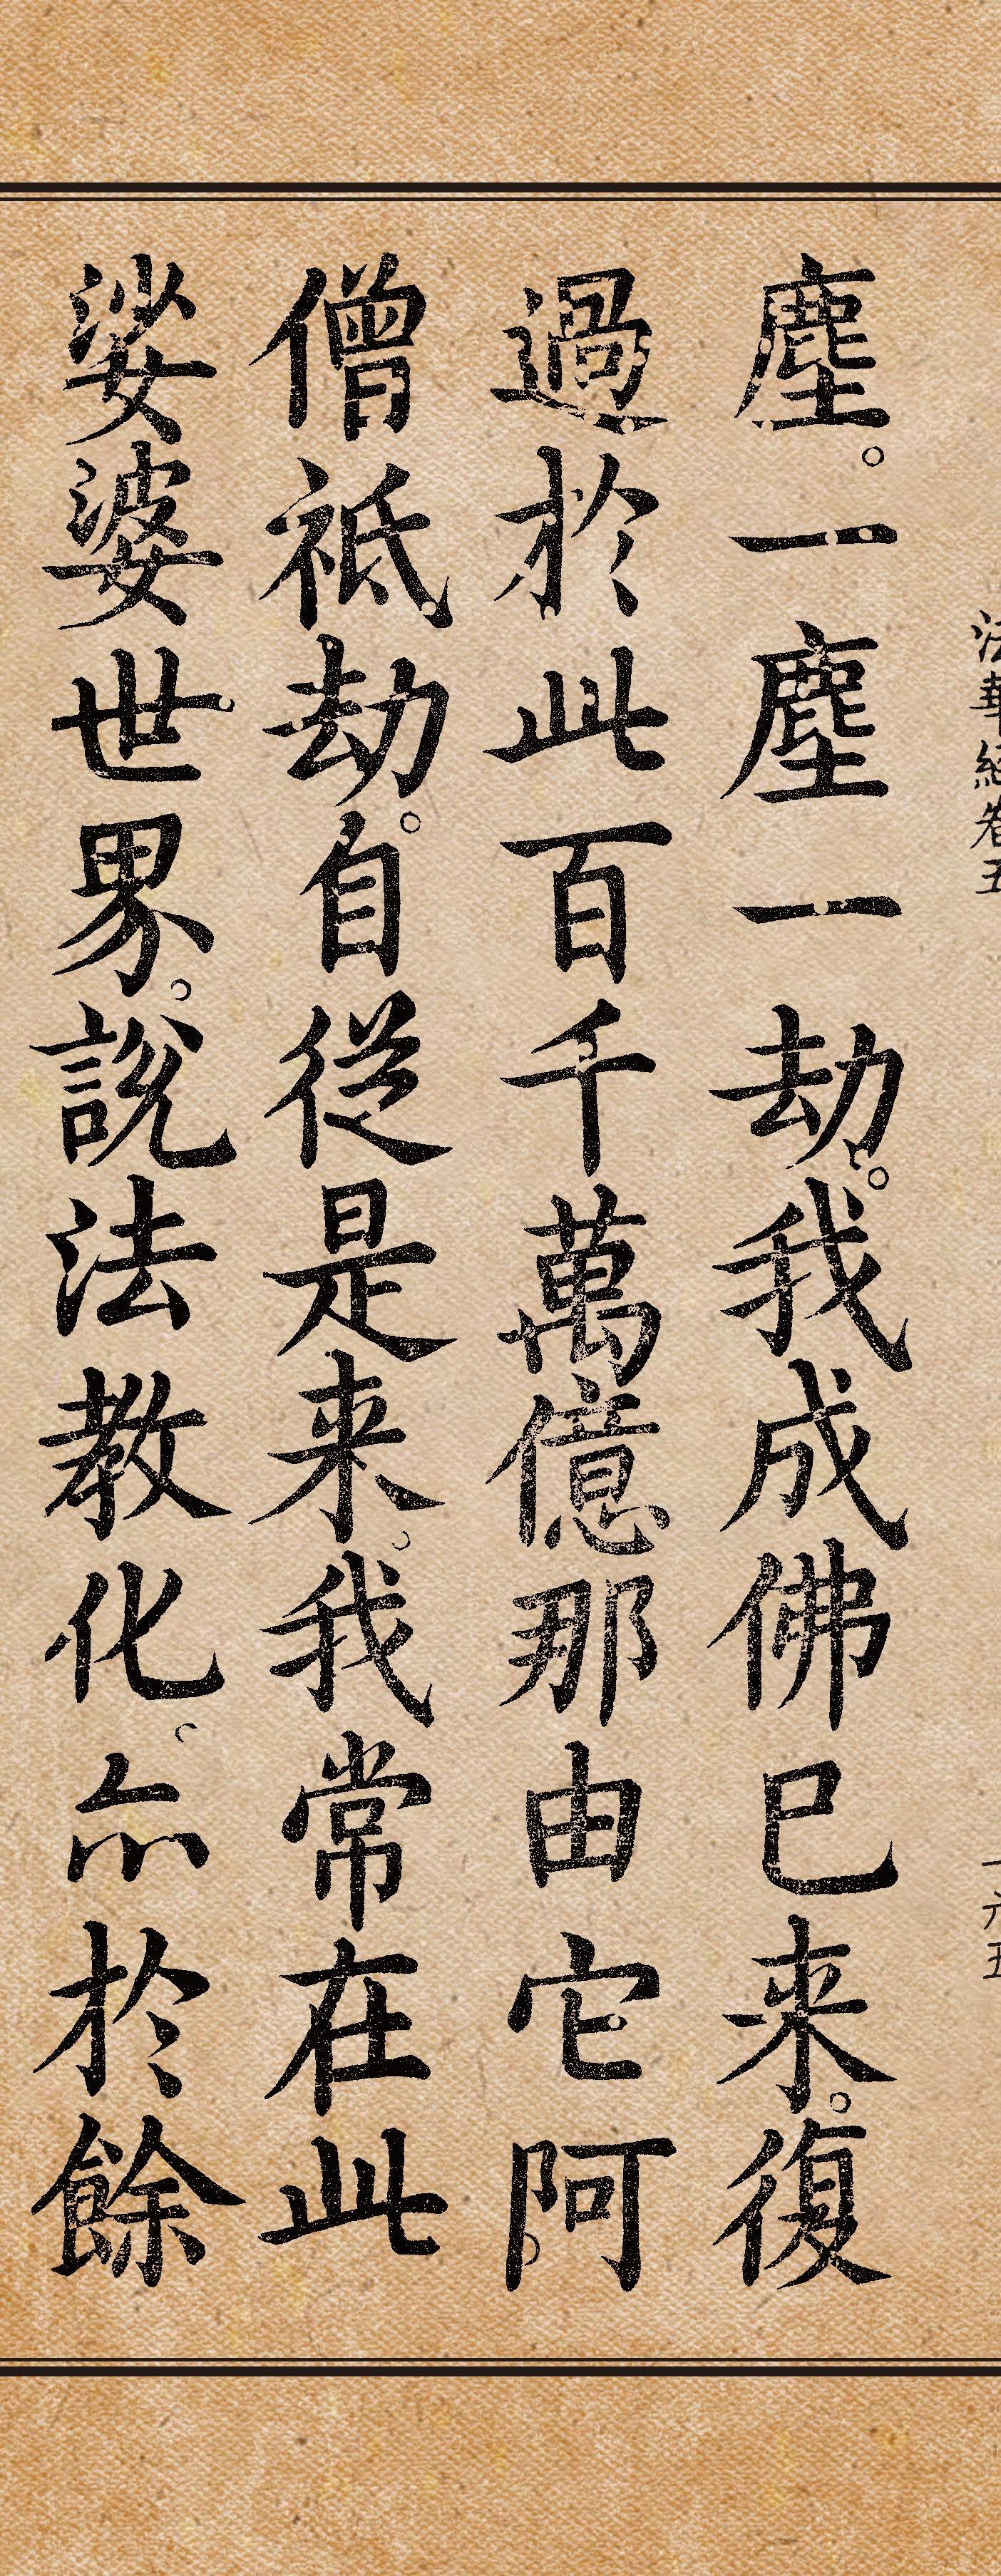 法華經卷五
一六五
塵。一塵一劫。我成佛已来。復
過於此百千萬億那由它阿
僧祇劫。自從是来。我常在此
娑婆世界。說法教化。亦於餘